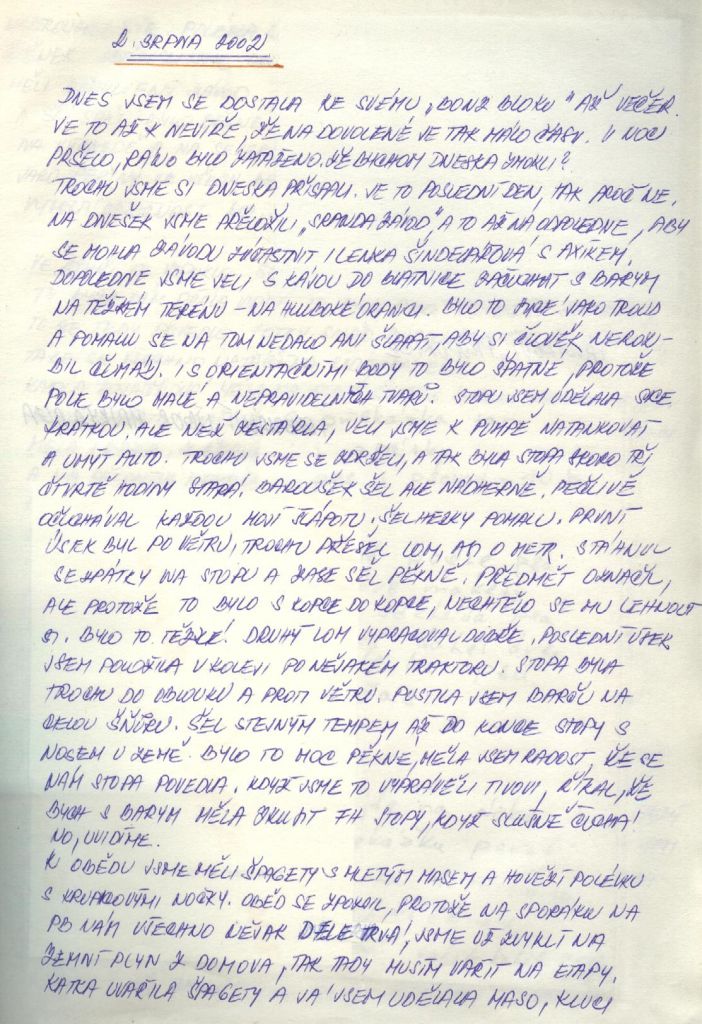 2. SRPNA 2002
DNES JSEM SE DOSTALA KE SVÉMU „BONZ BLOKU" AŽ VEČER.
JE TO AŽ K NEVÍŘE, ŽE NA DOVOLENÉ JE TAK MÁLO ČASU. V NOCI
PRŠELO, RÁNO BYLO ZATAŽENO. ŽE BYCHOM DNESKA ZMOKLI?
TROCHU JSME SI DNESKA PŘISPALI. JE TO POSLEDNÍ DEN, TAK PROČ NE.
NA DNEŠEK JSME PŘELOŽILI „SRANDA ZÁVOD", A TO AŽ NA ODPOLEDNE, ABY
SE MOHLA ZÁVODU ZÚČASTNIT I LENKA ŠINDELÁŘOVÁ S AXÍKEM.
DOPOLEDNE JSME JELI S KÁJOU DO BLATNICE ZAČUCHAT S BARYM
NA TĚŽKÉM TERÉNU – NA HLUBOKÉ ORANICI. BYLO TO JAKO TROUD
A POMALU SE NA TOM NEDALO ANI ŠLAPAT, ABY SI ČLOVĚK NEROZ-
BIL ČUMÁK. I S ORIENTAČNÍMI BODY TO BYLO ŠPATNÉ, PROTOŽE
POLE BYLO MALÉ A NEPRAVIDELNÝCH TVARŮ. STOPU JSEM UDĚLALA SICE
KRÁTKOU, ALE NEŽ ZESTÁRLA, JELI JSME K PUMPĚ NATANKOVAT
A UMÝT AUTO. TROCHU JSME SE ZDRŽELI, A TAK BYLA STOPA SKORO TŘI
ČTVRTĚ HODINY STARÁ. BAROUŠEK ŠEL ALE NÁDHERNĚ. PEČLIVĚ
OČUCHÁVAL KAŽDOU MOJÍ ŠLÁPOTU. ŠEL HEZKY POMALU. PRVNÍ
ÚSEK BYL PO VĚTRU, TROCHU PŘEŠEL LOM, ASI O METR. STÁHNUL
SE ZPÁTKY NA STOPU A ZASE ŠEL PĚKNĚ. PŘEDMĚT OZNAČIL,
ALE PROTOŽE TO BYLO S KOPCE DO KOPCE, NECHTĚLO SE MU LEHNOUT
SI. BYLO TO TĚŽKÉ! DRUHÝ LOM VYPRACOVAL DOBŘE. POSLEDNÍ ÚSEK
JSEM POLOŽILA V KOLEJI PO NĚJAKÉM TRAKTORU. STOPA BYLA
TROCHU DO OBLOUKU A PROTI VĚTRU. PUSTILA JSEM BARČU NA
CELOU ŠŇŮRU. ŠEL STEJNÝM TEMPEM AŽ DO KONCE STOPY S
NOSEM U ZEMĚ. BYLO TO MOC PĚKNÉ, MĚLA JSEM RADOST, ŽE SE
NÁM STOPA POVEDLA. KDYŽ JSME TO VYPRÁVĚLI IVOVI, ŘÍKAL, ŽE
BYCH S BARYM MĚLA ZKUSIT FH STOPY, KDYŽ SLUŠNĚ ČUCHÁ!
NO, UVIDÍME.
K OBĚDU JSME MĚLI ŠPAGETY S MLETÝM MASEM A HOVĚZÍ POLÉVKU
S KRUPICOVÝMI NOČKY. OBĚD SE ZPOZDIL, PROTOŽE NA SPORÁKU NA
PB NÁM VŠECHNO NĚJAK DÉLE TRVÁ, JSME UŽ ZVYKLÍ NA
ZEMNÍ PLYN Z DOMOVA, TAK TADY MUSÍM VAŘIT NA ETAPY.
KATKA UVAŘILA ŠPAGETY A JÁ JSEM UDĚLALA MASO, KLUCI